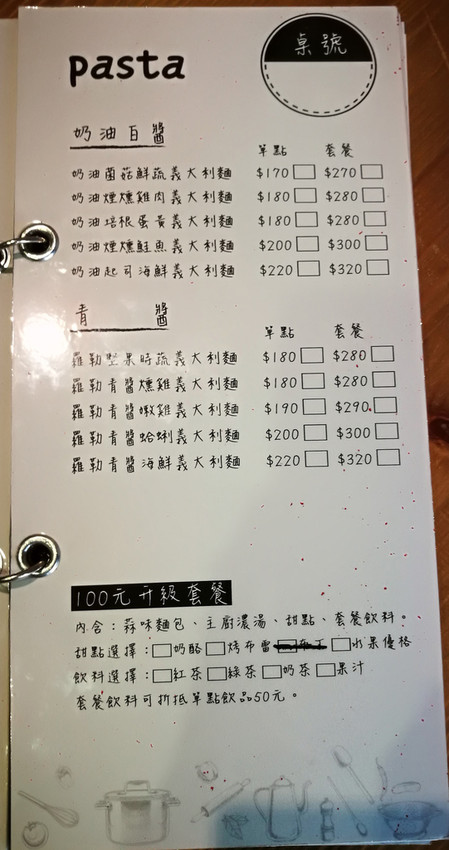 桌號
pasta
奶油白醬
單點 套餐
奶油菌菇鮮蔬義大利麵 $170 $270
奶油煙燻雞肉義大利麵 $180 $280
奶油培根蛋黃義大利麵 $180 $280
奶油煙燻鮭魚義大利麵 $200 $300
奶油起司海鮮義大利麵 $220 $320
青醬
單點 套餐
羅勒堅果時蔬義大利麵 $180 $280
羅勒青醬燻雞義大利麵 $180 $280
羅勒青醬嫩雞義大利麵 $190 $290
羅勒青醬蛤蜊義大利麵 $200 $300
羅勒青醬海鮮義大利麵 $220 $320
100元升級套餐
內含：蒜味麵包、主廚濃湯、甜點、套餐飲料。
甜點選擇：奶酪 烤布蕾 水果優格
飲料選擇：紅茶 綠茶 奶茶 果汁
套餐飲料可折抵單點飲品50元。